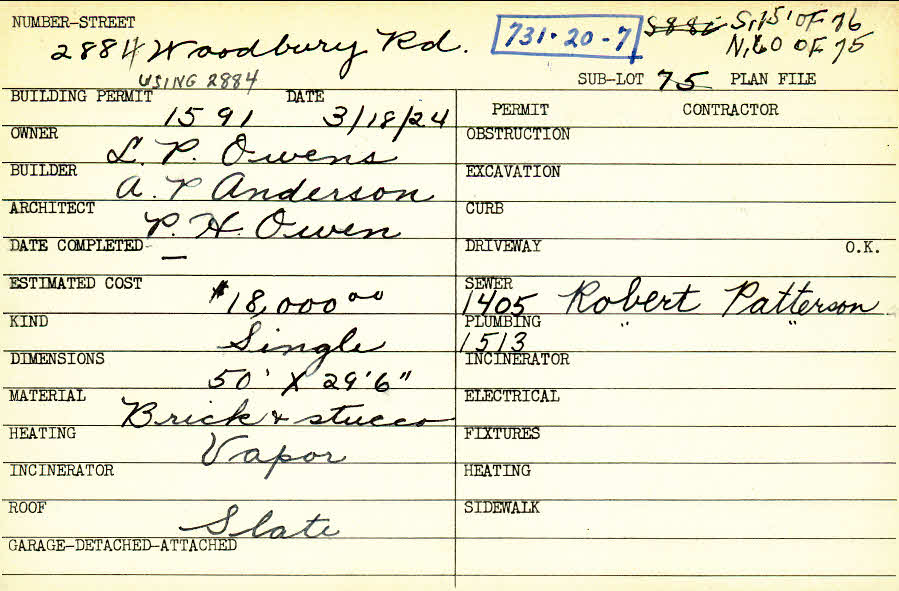 NUMBER-STREET
2884 Woodbury Rd.
731-20-7
S.15' OF 76
N.60 OF 75
USING 2884
SUB-LOT 75 PLAN FILE
BUILDING PERMIT DATE
1591 3/18/24
PERMIT CONTRACTOR
OWNER
L. P. Owens
OBSTRUCTION
BUILDER
A. P Anderson
EXCAVATION
ARCHITECT
P. H. Owen
CURB
DATE COMPLETED-
—
DRIVEWAY O.K.
ESTIMATED COST
$18,000 00
SEWER
1405 Robert Patterson
KIND
Single
PLUMBING
1513 " "
DIMENSIONS
50' X 29'6"
INCINERATOR
MATERIAL
Brick + stucco
ELECTRICAL
HEATING
Vapor
FIXTURES
INCINERATOR
HEATING
ROOF
Slate
SIDEWALK
GARAGE-DETACHED-ATTACHED